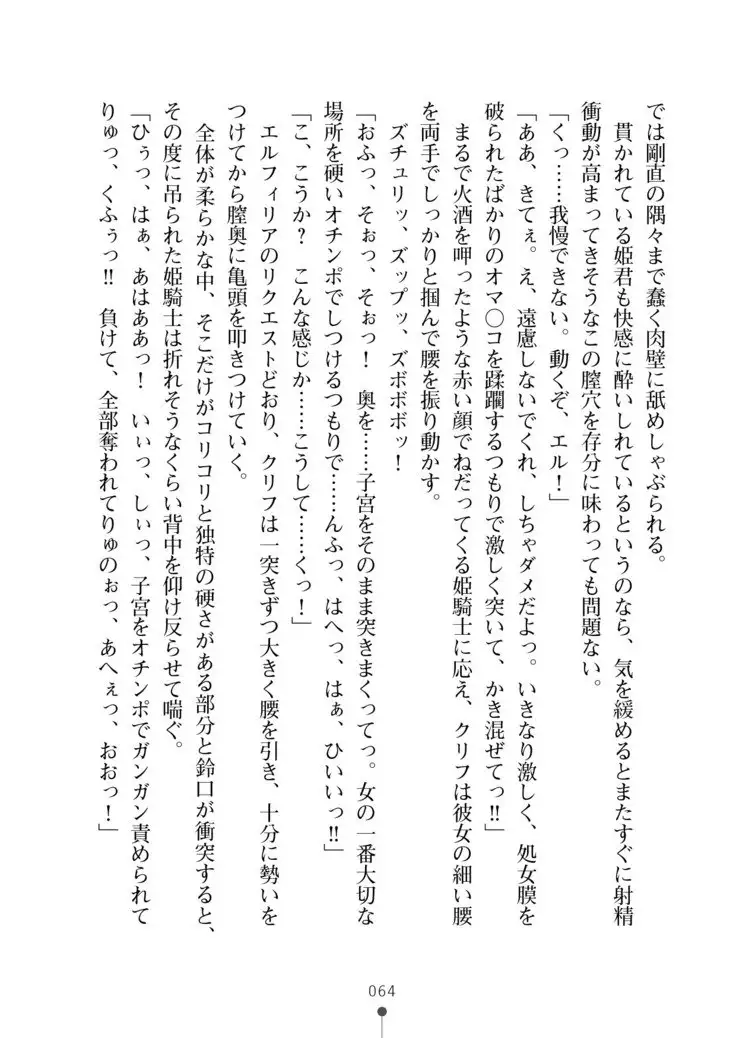 では剛直の隅々まで蠢く肉壁に舐めしゃぶられる。
　貫かれている姫君も快感に酔いしれているというのなら、気を緩めるとまたすぐに射精
衝動が高まってきそうなこの膣穴を存分に味わっても問題ない。
「くっ……我慢できない。動くぞ、エル！」
「ああ、きてぇ。え、遠慮しないでくれ、しちゃダメだよっ。いきなり激しく、処女膜を
破られたばかりのオマ〇コを蹂躙するつもりで激しく突いて、かき混ぜてっ!!」
　まるで火酒を呷ったような赤い顔でねだってくる姫騎士に応え、クリフは彼女の細い腰
を両手でしっかりと掴んで腰を振り動かす。
　ズチュリッ、ズップッ、ズボボボッ！
「おふっ、そぉっ、そぉっ！　奥を……子宮をそのまま突きまくってっ。女の一番大切な
場所を硬いオチンポでしつけるつもりで……んふっ、はへっ、はぁ、ひいいっ!!」
「こ、こうか？　こんな感じか……こうして……くっ！」
　エルフィリアのリクエストどおり、クリフは一突きずつ大きく腰を引き、十分に勢いを
つけてから膣奥に亀頭を叩きつけていく。
　全体が柔らかな中、そこだけがコリコリと独特の硬さがある部分と鈴口が衝突すると、
その度に吊られた姫騎士は折れそうなくらい背中を仰け反らせて喘ぐ。
「ひぅっ、はぁ、あはああっ！　いぃっ、しぃっ、子宮をオチンポでガンガン責められて
りゅっ、くふぅっ!!　負けて、全部奪われてりゅのぉっ、あへぇっ、おおっ！」
064